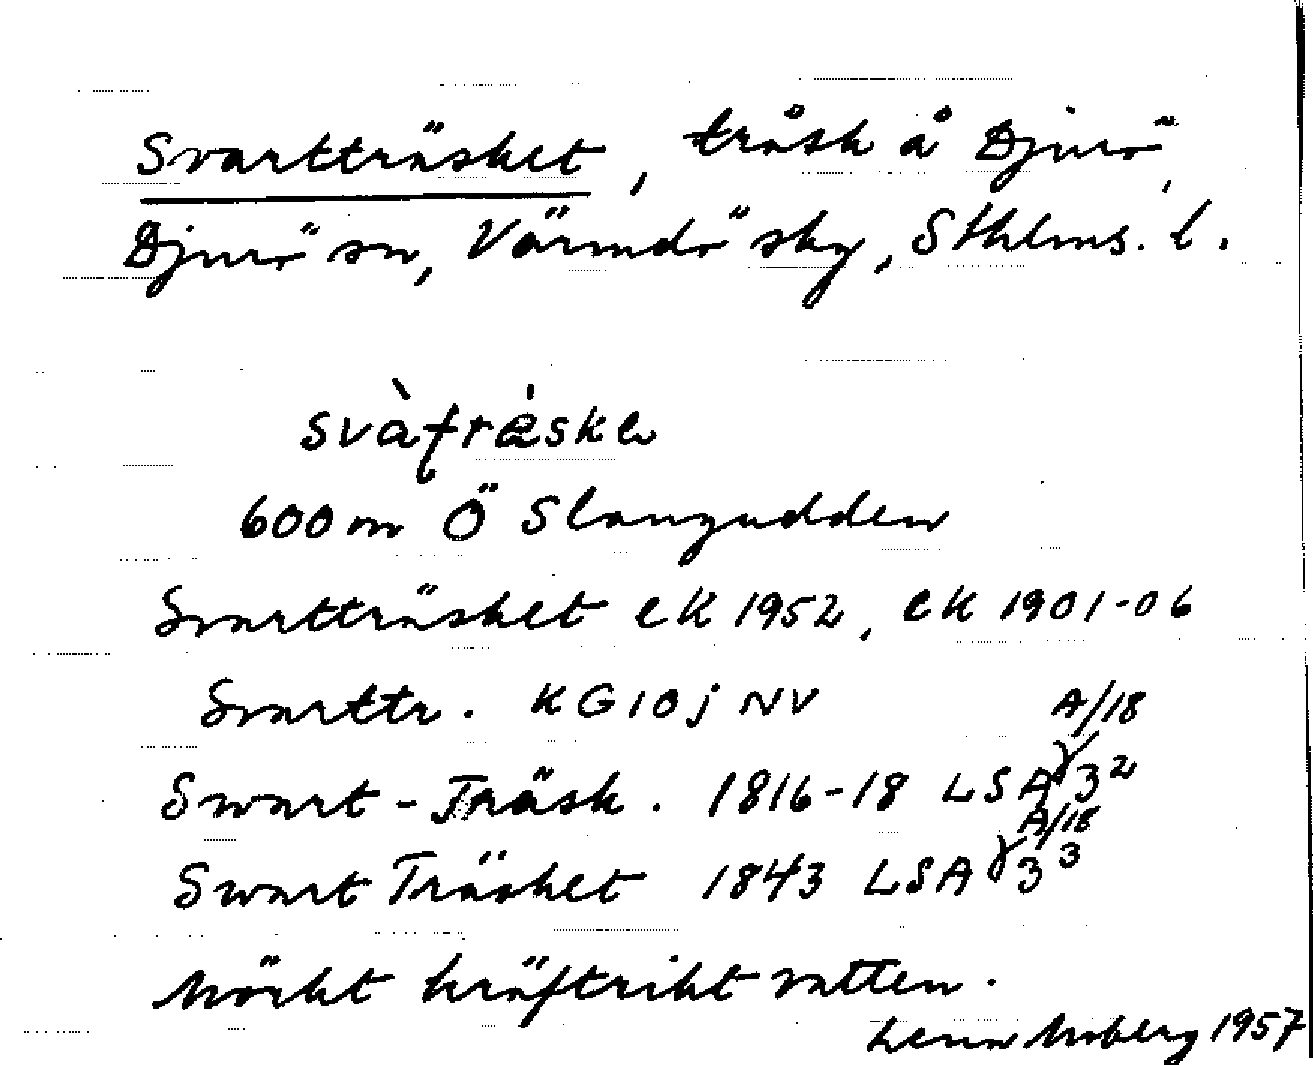 Svartträsket, träsk å Djurö,
Djurö sn, Värmdö sky, Sthlms. l.
svàfrèske
600 m Ö Slangudden
Svartträsket eK 1952, eK 1901-06
Svarttr. KG 10 j NV
Swart-Träsk. 1816-18 LSA A/18 3²
Swart Träsket 1843 LSA A/18 3³
Mörkt kräftrikt vatten.
Lena Moberg 1957